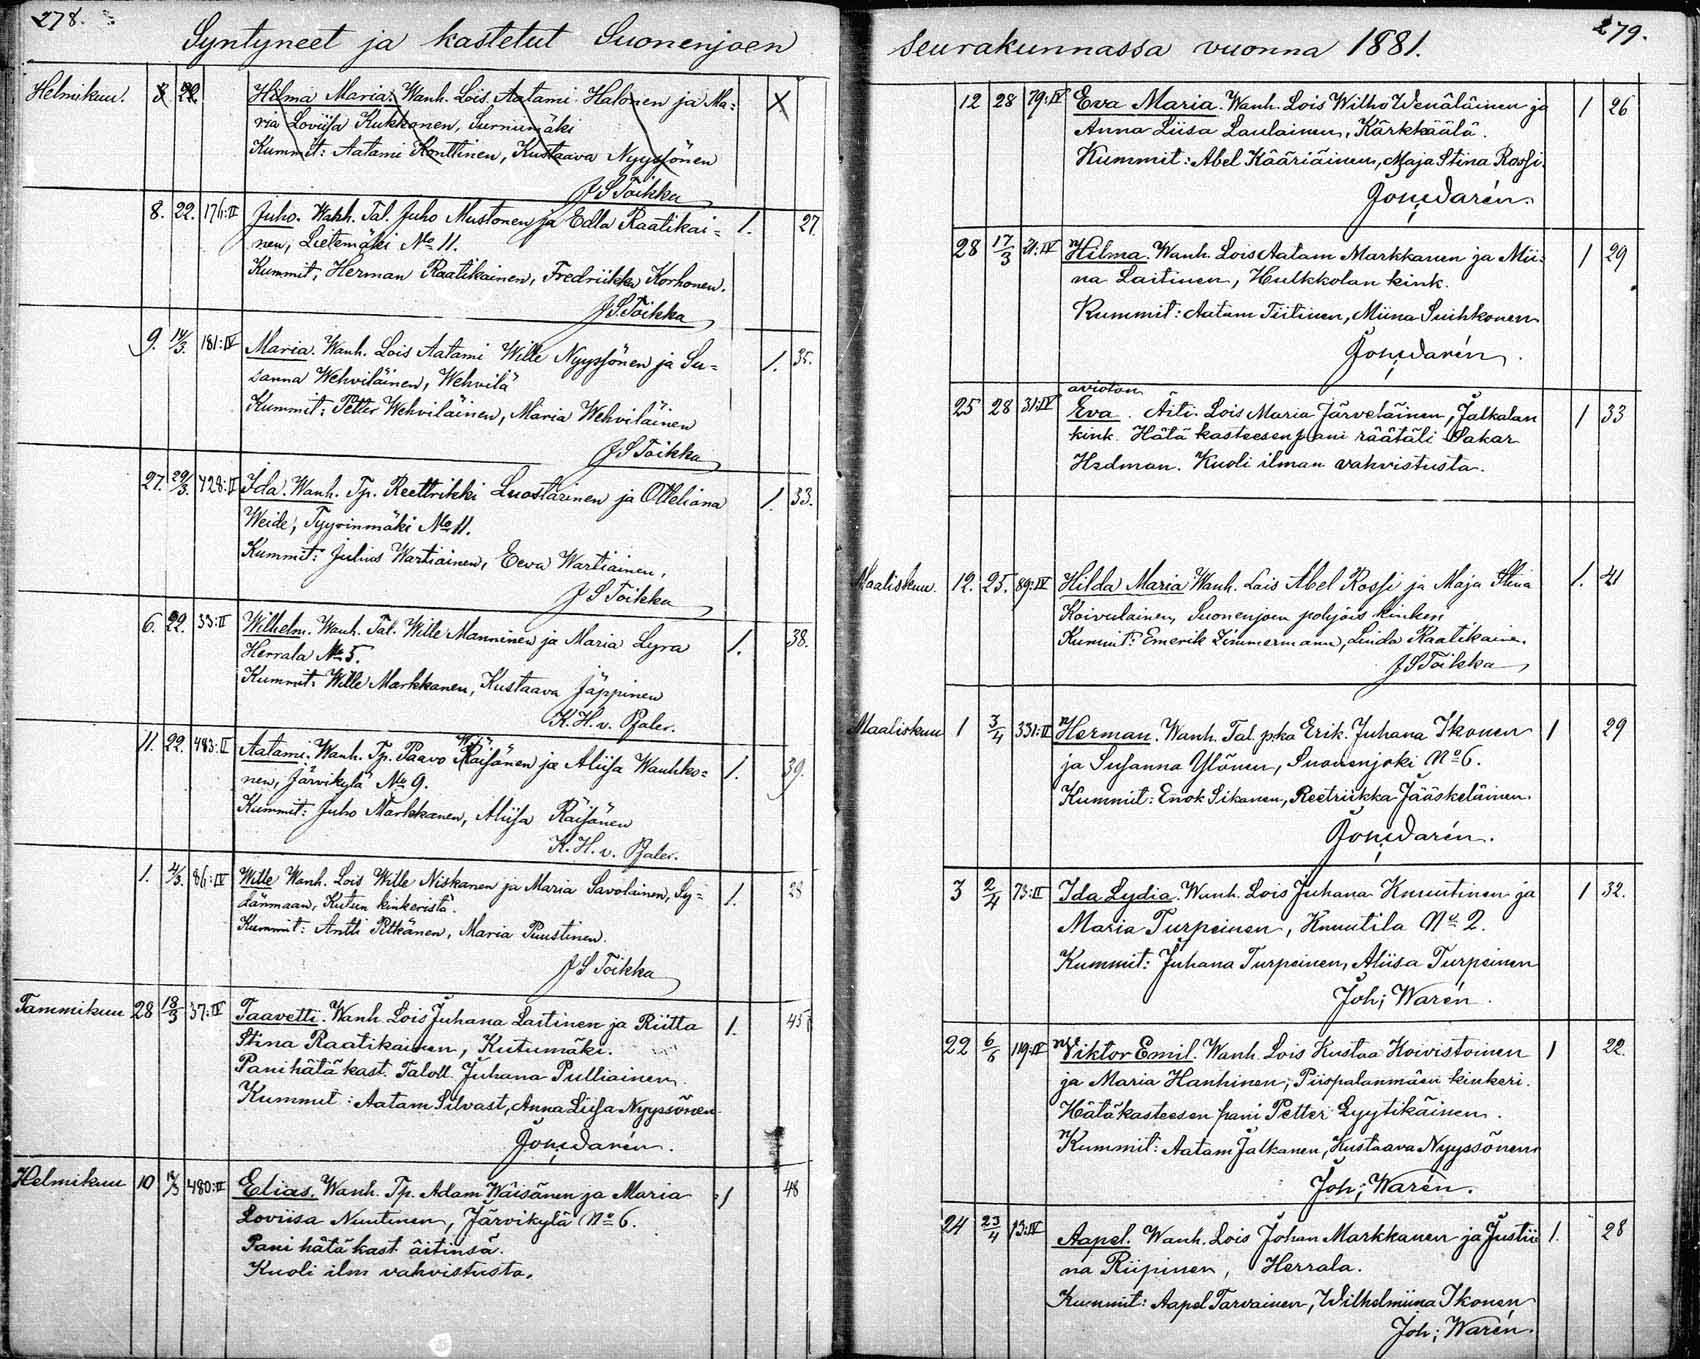 278.
Syntyneet ja kastetut Suonenjoen
Helmikuu. 8 22. Hilma Maria. Wanh. Lois. Aatami Halonen ja Ma=
ria Loviisa Kukkonen, Surnumäki
Kummit: Aatami Konttinen, Kustaava Nyyssönen
J S Toikka
8. 22. 176:II Juho. Wanh. Tal. Juho Mustonen ja Edla Raatikai= 1. 27
nen, Lietemäki No 11.
Kummit, Herman Raatikainen, Fredriikka Korhonen.
J.S.Toikka
9. 14/3. 181:IV Maria. Wanh. Lois Aatami Wille Nyyssönen ja Su= 1. 35.
sanna Wehviläinen, Wehvilä
Kummit: Petter Wehviläinen, Maria Wehviläinen
J S Toikka
27. 29/3. 728:II Ida. Wanh. Tp. Reettrikki Luostarinen ja Otteliana 1. 33.
Weide, Tyyrinmäki No 11.
Kummit: Julius Wartiainen, Eeva Wartiainen,
J S Toikka
6. 22. 33:II Wilhelm. Wanh. Tal. Wille Manninen ja Maria Lyra 1. 38.
Herrala No 5.
Kummit. Wille Markkanen, Kustaava Jäppinen
K. H. v. Pfaler.
11. 22. 483:II Aatami. Wanh. Tp. Paavo Räisänen ja Aliisa Wauhko= 1. 39.
nen, Järvikylä No 9.
Kummit: Juho Markkanen, Aliisa Räisänen
K. H. v. Pfaler.
1. 4/3. 86:IV Wille Wanh. Lois Wille Niskanen ja Maria Savolainen, Sy= 1.
dänmaan, Kutun kinkeristä.
Kummit: Antti Pitkänen, Maria Puustinen.
J S Toikka
Tammikuu 28 18/3 37:IV Taavetti. Wanh. Lois Juhana Laitinen ja Riitta 1. 45
Stina Raatikainen, Kutumäki.
Pani hätäkast. Taloll. Juhana Pulliainen.
Kummit: Aatam Silvast, Anna Liisa Nyyssönen
Joh; Warén.
Helmikuu 10 480:II Elias. Wanh. Tp. Adam Wäisänen ja Maria 1 48
Loviisa Nuutinen, Järvikylä No 6.
Pani hätäkast äitinsä.
Kuoli ilm vahvistusta.
279.
seurakunnassa vuonna 1881.
12 28 79:IV Eva Maria. Wanh. Lois Wilho Wenäläinen ja 1 26
Anna Liisa Laulainen, Kärkkäälä.
Kummit: Abel Kääriäinen, Maja Stina Rossi.
Joh; Warén.
28 17/3 21:IV Hilma. Wanh. Lois Aatam Markkanen ja Mii= 1 29
na Laitinen, Hulkkolan kink.
Kummit: Aatam Tiitinen, Miina Suihkonen
Joh; Warén.
25 28 31:IV avioton
Eva. Äiti. Lois Maria Järveläinen, Jalkalan 1 33
kink. Hätäkasteesen pani räätäli Sakar
Hedman. Kuoli ilman vahvistusta.
Maaliskuu. 12. 25. 89:IV Hilda Maria Wanh. Lois Abel Rossi ja Maja Stina 1. 41
Koivulainen, Suonenjoen pohjois kinkeri
Kummit: Emerik Zimmermann, Linda Raatikainen.
J S Toikka
Maaliskuu 1 3/4 331:II Herman. Wanh. Tal. p:ka Erik Juhana Ikonen 1 29
ja Susanna Ylönen, Suonenjoki No 6.
Kummit: Enok Sikanen, Reetriikka Jääskeläinen.
Joh; Warén.
3 2/4 73:II Ida Lydia. Wanh. Lois Juhana Knuutinen ja 1 32.
Maria Turpeinen, Knuutila No 2.
Kummit: Juhana Turpeinen, Aliisa Turpeinen
Joh; Warén.
22 6/6 119:IV Viktor Emil. Wanh. Lois Kustaa Koivistoinen 1 22.
ja Maria Hanhinen; Piispalanmäen kinkeri.
Hätäkasteesen pani Petter Lyytikäinen.
Kummit: Aatam Jalkanen, Kustaava Nyyssönen
Joh; Warén.
24 23/4 13:IV Aapel. Wanh. Lois Johan Markkanen ja Justii 1. 28
na Riipinen, Herrala.
Kummit: Aapel Tarvainen, Wilhelmiina Ikonen
Joh; Warén.